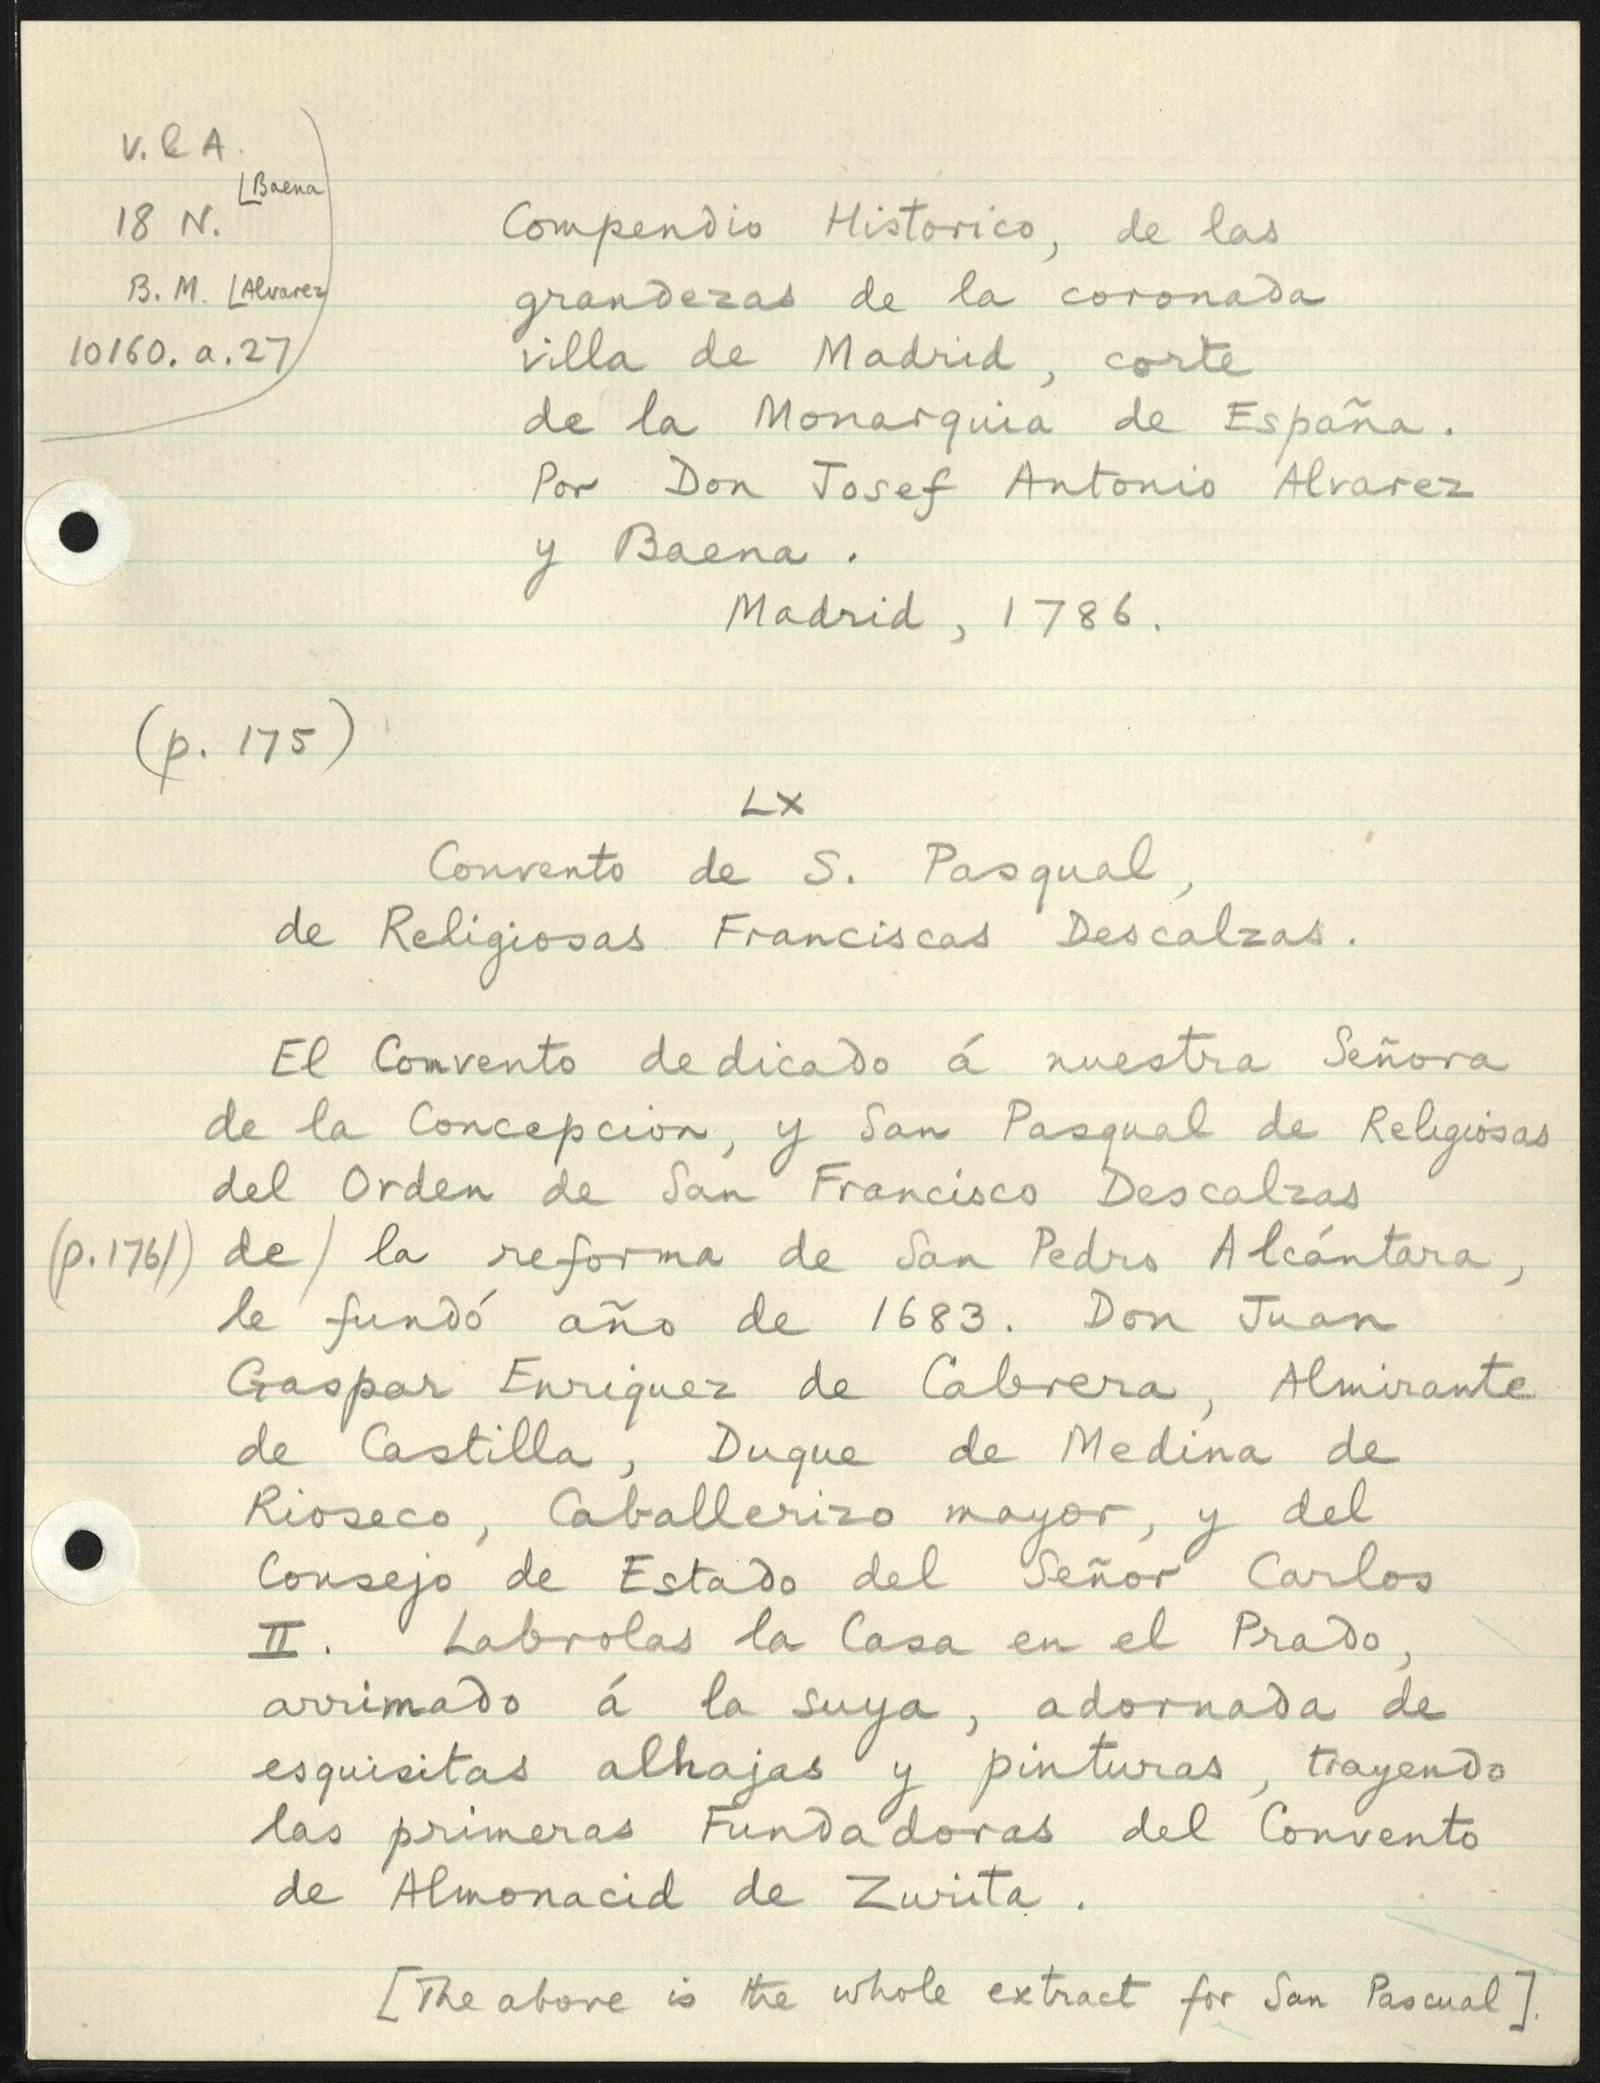 V. & A.
[Baena
18 N.
B. M. [Alvarez
10160. a. 27
Compendio Historico, de las
grandezas de la coronada
villa de Madrid, corte
de la Monarquia de España.
Por Don Josef Antonio Alvarez
y Baena.
Madrid, 1786.
(p. 175)
LX
Convento de S. Pasqual,
de Religiosas Franciscas Descalzas.
El Convento dedicado á nuestra Señora
de la Concepcion, y San Pasqual de Religiosas
del Orden de San Francisco Descalzas
(p. 176/) de / la reforma de San Pedro Alcántara,
le fundó año de 1683. Don Juan
Gaspar Enriquez de Cabrera, Almirante
de Castilla, Duque de Medina de
Rioseco, Caballerizo mayor, y del
Consejo de Estado del Señor Carlos
II. Labrolas la Casa en el Prado,
arrimado á la suya, adornada de
esquisitas alhajas y pinturas, trayendo
las primeras Fundadoras del Convento
de Almonacid de Zurita.
[The above is the whole extract for San Pascual].